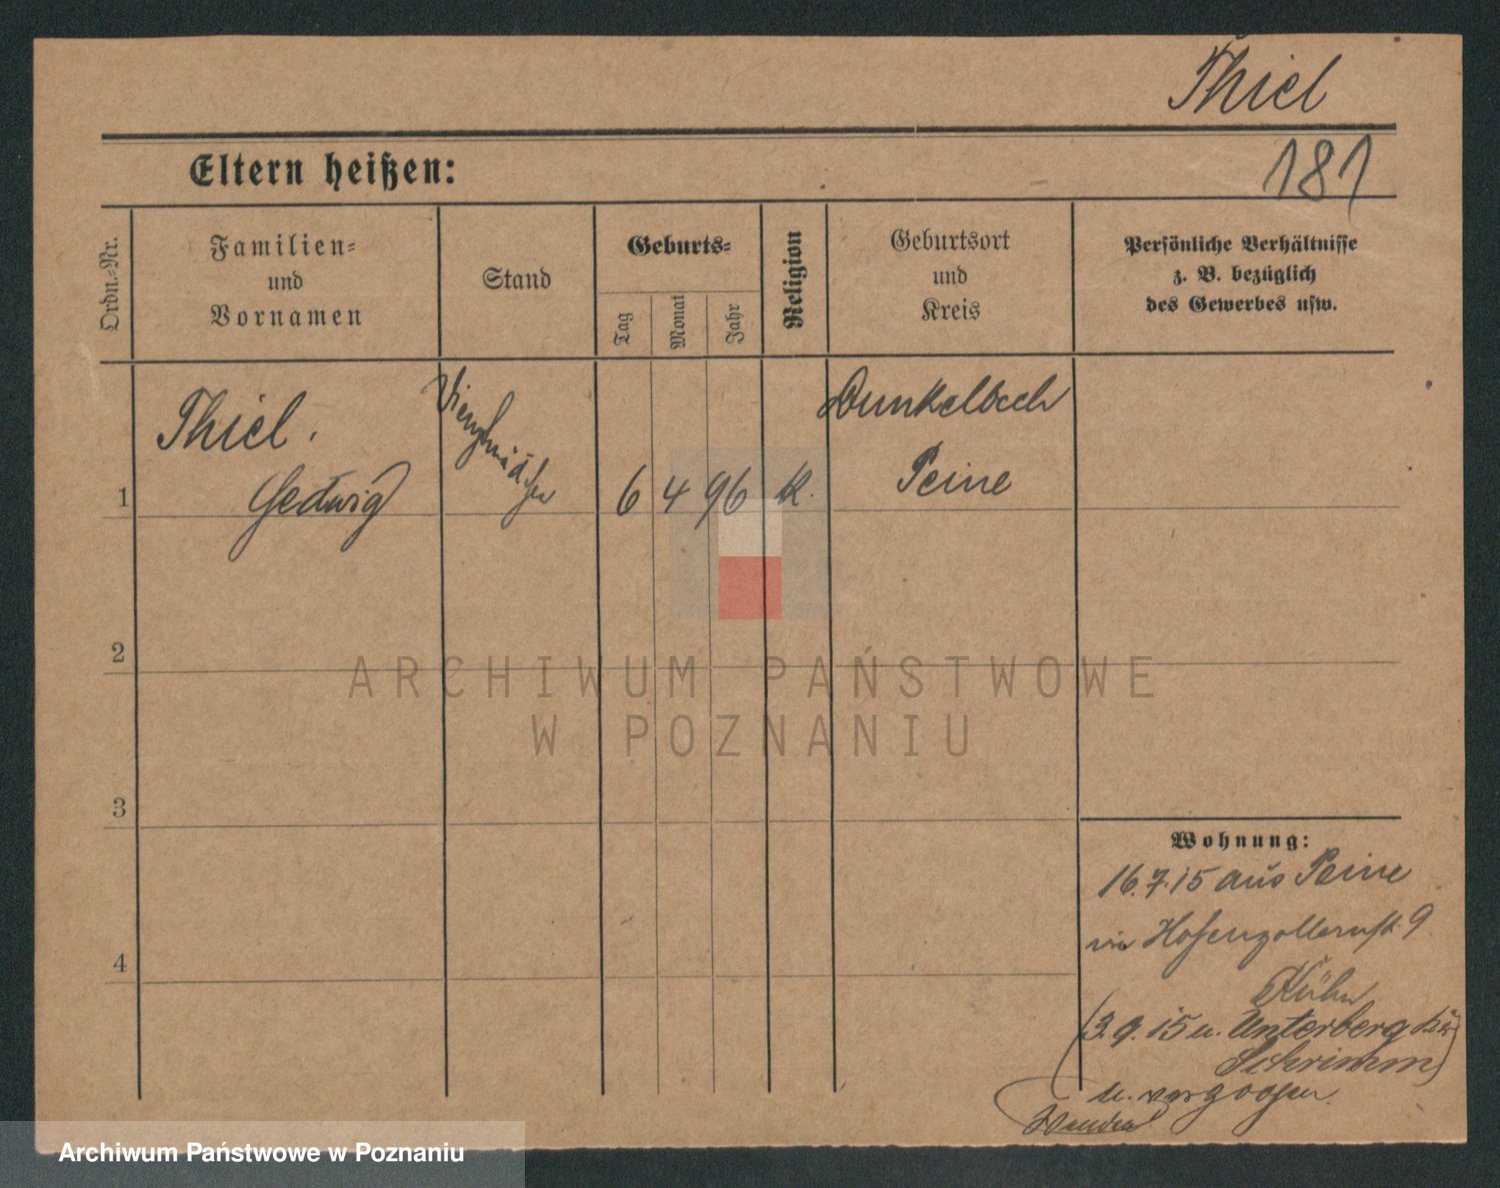 Thiel
181
Eltern heißen:
Ordn.-Nr.
Familien-
und
Vornamen
Stand
Geburts-
Tag
Monat
Jahr
Religion
Geburtsort
und
Kreis
Persönliche Verhältnisse
z. B. bezüglich
des Gewerbes usw.
1
Thiel.
Hedwig
Dienstmädchen
6
4
96
k.
Peine
2
3
4
Wohnung:
16.7.15 aus Peine
Hohenzollernstr. 9
Kühn
(3.9.15 n. Unterberg Kr.
Schrimm)
u. verzogen.
ARCHIWUM PAŃSTWOWE
W POZNANIU
Archiwum Państwowe w Poznaniu